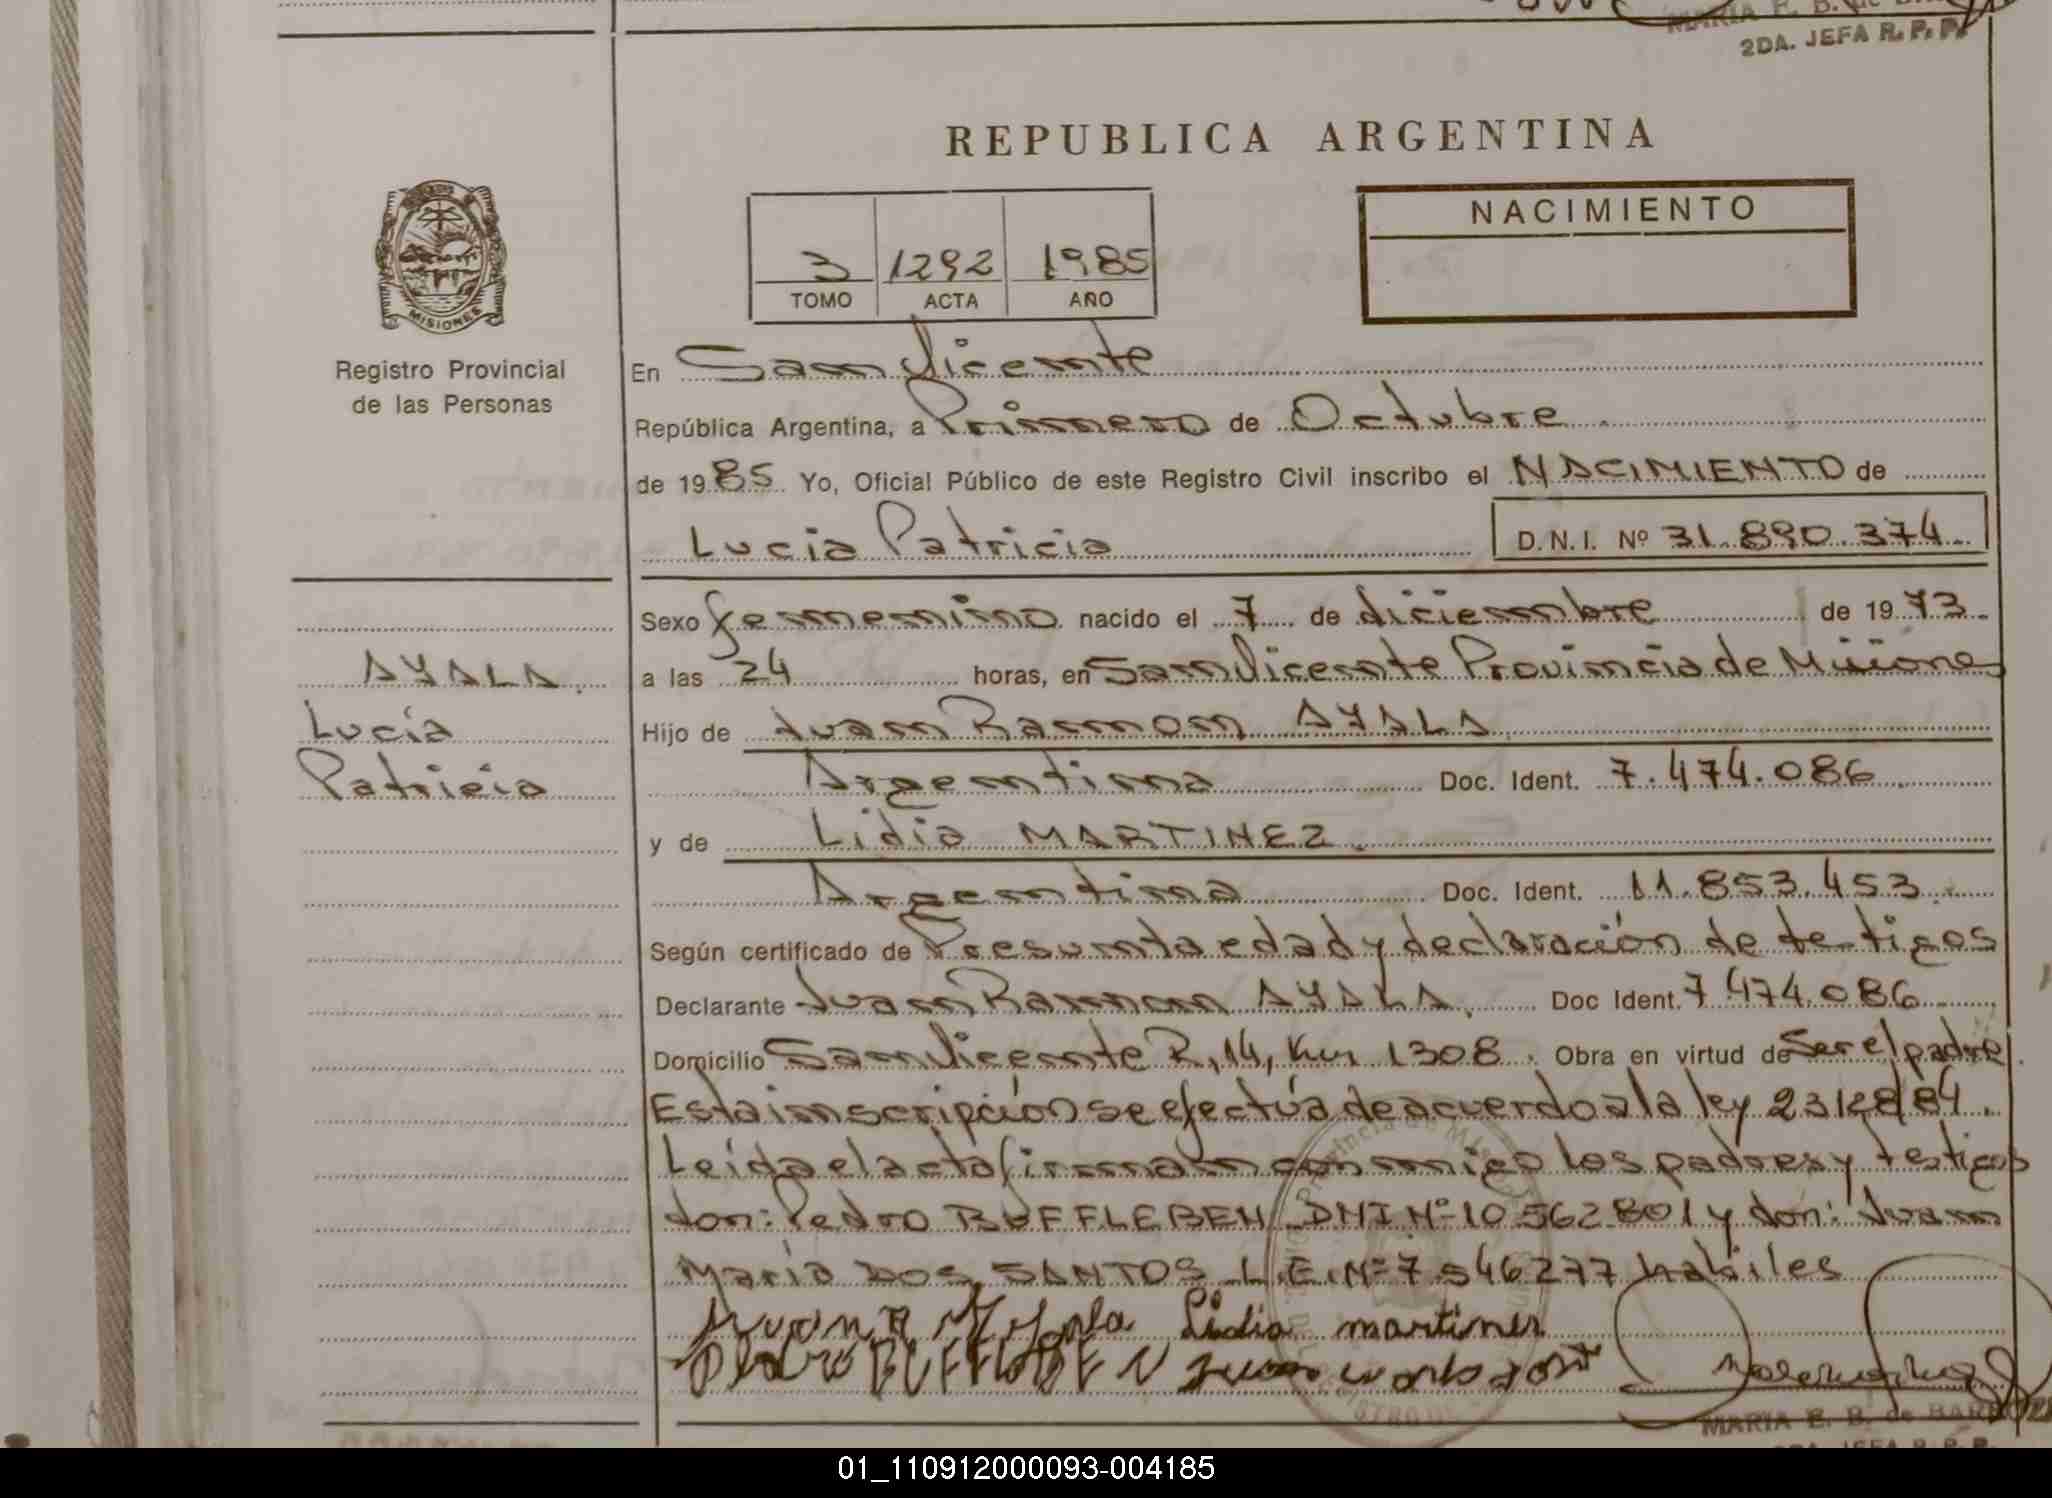 2DA. JEFA R. P. P.
REPUBLICA ARGENTINA
MISIONES
Registro Provincial
de las Personas
3 1292 1985
TOMO ACTA AÑO
NACIMIENTO
En San Vicente
República Argentina, a Primero de Octubre
de 1985 Yo, Oficial Público de este Registro Civil inscribo el NACIMIENTO de
Lucia Patricia D.N.I. Nº 31.890.374
AYALA.
Lucía
Patricia
Sexo femenino nacido el 7 de diciembre de 1973
a las 24 horas, en San Vicente Provincia de Misiones
Hijo de Juan Ramon AYALA
Argentina Doc. Ident. 7.474.086
y de Lidia MARTINEZ.
Argentina Doc. Ident. 11.853.453
Según certificado de Presunta edad y declaración de testigos
Declarante Juan Ramon AYALA. Doc Ident. 7.474.086
Domicilio San Vicente R. 14, Km 1308. Obra en virtud de Ser el padre.
Esta inscripción se efectúa de acuerdo a la ley 23128/84.
Leída el acta firman conmigo los padres y testigos
don: Pedro BUFFLEBEN DNI Nº 10562801 y don: Juan
María DOS SANTOS L.E. Nº 7.546277 habiles
Juan R Ayala Lidia martines
Pedro BUFFLEBEN Juan
MARIA E. B. de
01_110912000093-004185